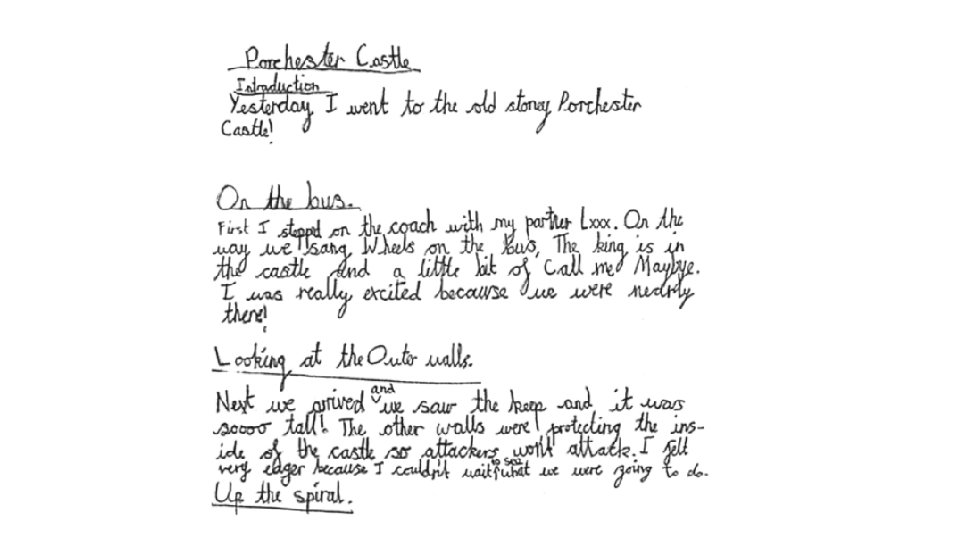 Porchester Castle
Introduction
Yesterday I went to the old stoney Porchester
Castle!
On the bus.
First I stepped on the coach with my partner Lxxx. On the
way we sang Wheels on the bus, The king is in
the castle and a little bit of Call me Maybye.
I was really excited because we were nearly
there!
Looking at the Outer walls.
Next we arrived and we saw the keep and it was
soooo tall! The other walls were protecting the ins-
ide of the castle so attackers won't attack. I felt
very eager because I couldn't wait to see what we were going to do.
Up the spiral.